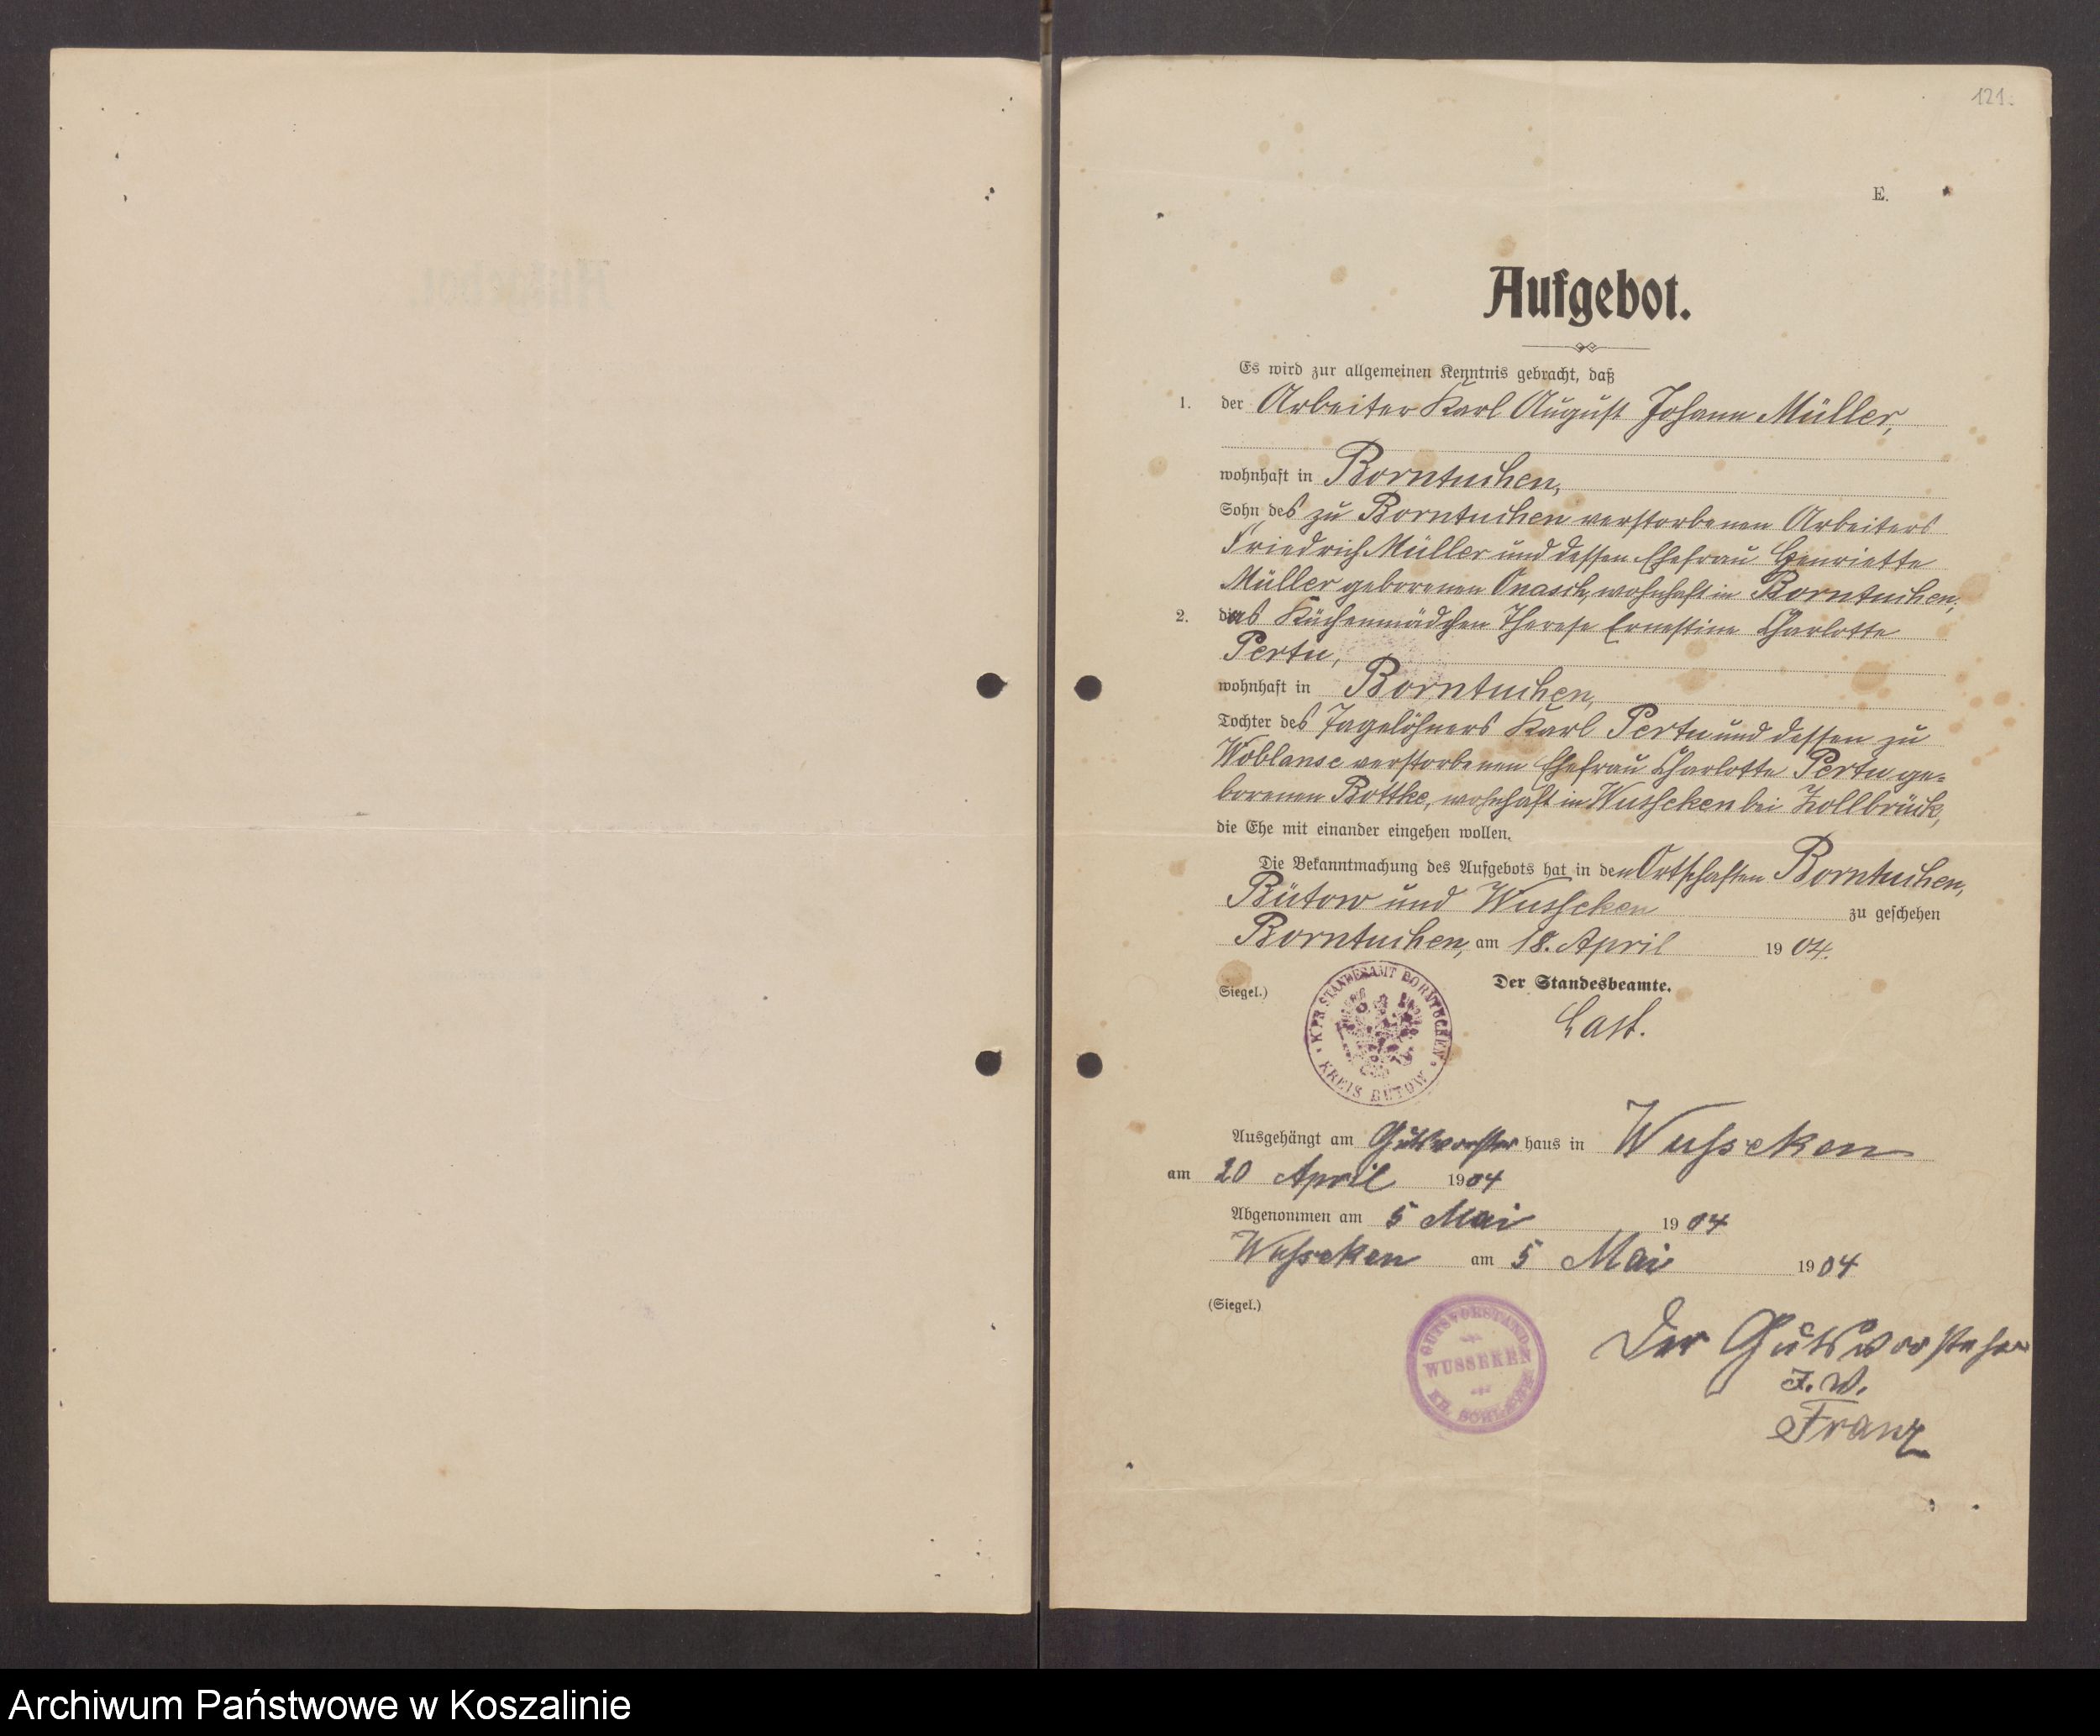 121.
E.
Aufgebot.
Es wird zur allgemeinen Kenntnis gebracht, daß
1. der Arbeiter Karl August Johann Müller,
wohnhaft in Borntuchen,
Sohn des zu Borntuchen verstorbenen Arbeiters
Friedrich Müller und dessen Ehefrau Henriette
Müller geborenen Onasch, wohnhaft in Borntuchen,
2. das Küchenmädchen Therese Ernestine Charlotte
Pertu,
wohnhaft in Borntuchen,
Tochter des Tagelöhners Karl Pertu und dessen zu
Woblanse verstorbenen Ehefrau Charlotte Pertu ge-
borenen Bottke, wohnhaft in Wusscken bei Zollbrück,
die Ehe mit einander eingehen wollen.
Die Bekanntmachung des Aufgebots hat in den Ortschaften Borntuchen,
Bütow und Wusscken zu geschehen
Borntuchen, am 18. April 1904.
(Siegel.) Der Standesbeamte.
K. PR. STANDESAMT BORNTUCHEN
KREIS BÜTOW
Last.
Ausgehängt am Gutsvorsteher haus in Wusseken
am 20 April 1904
Abgenommen am 5 Mai 1904
Wusseken am 5 Mai 1904
(Siegel.)
GUTSVORSTAND
WUSSEKEN
KR. SCHLAWE
Der Gutsvorsteher
J. V.
Franz
Archiwum Państwowe w Koszalinie